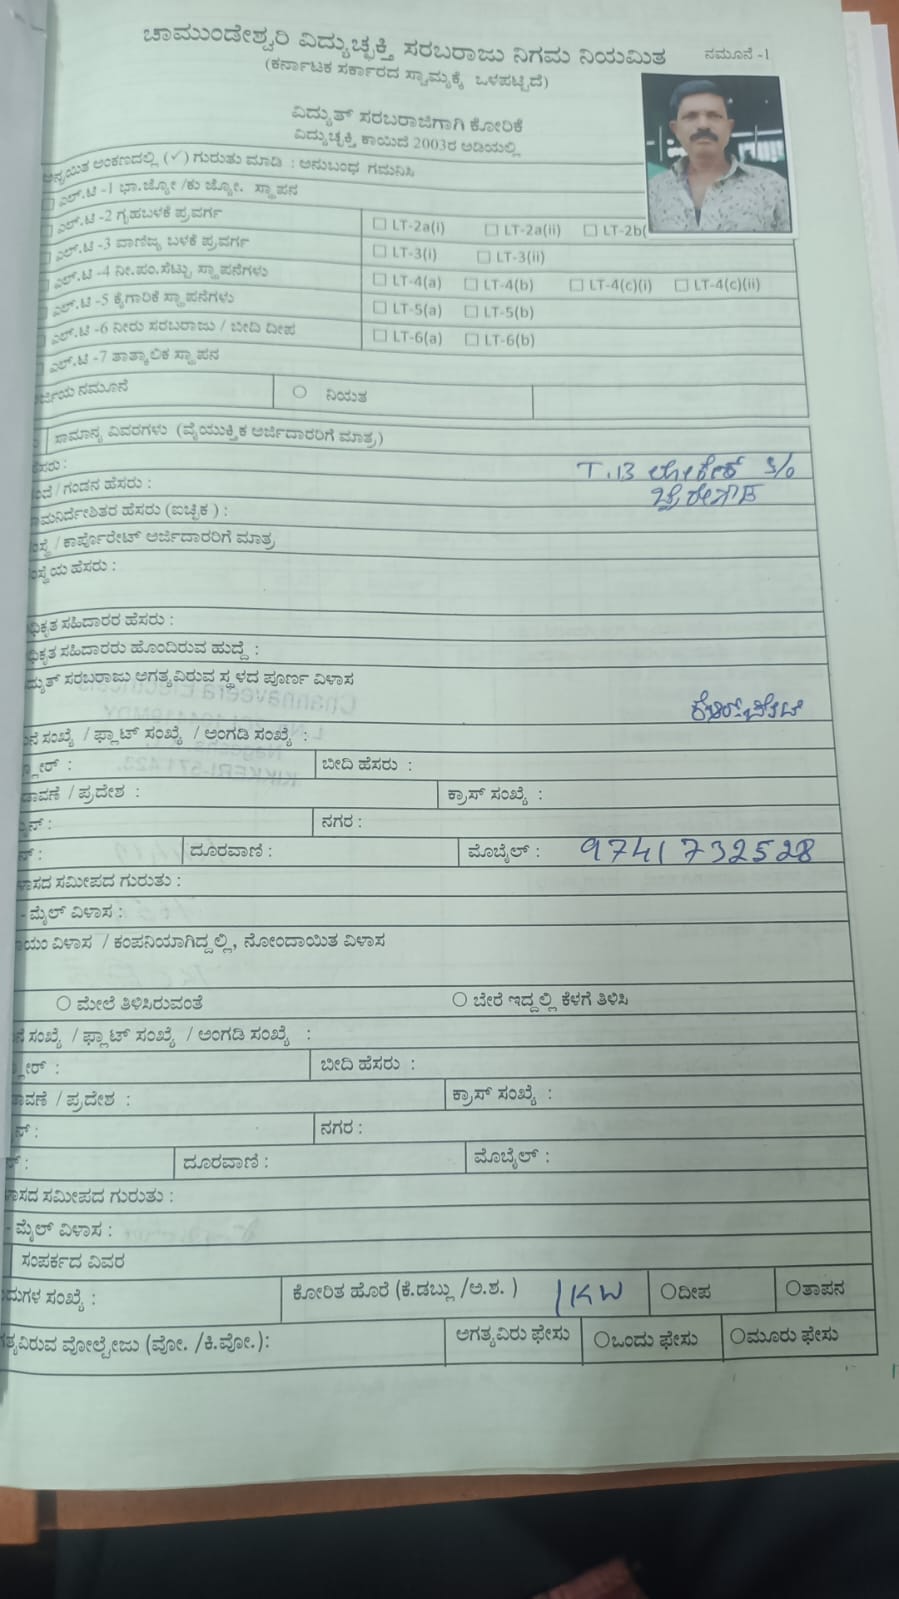 ಚಾಮುಂಡೇಶ್ವರಿ ವಿದ್ಯುಚ್ಛಕ್ತಿ ಸರಬರಾಜು ನಿಗಮ ನಿಯಮಿತ ನಮೂನೆ -1
(ಕರ್ನಾಟಕ ಸರ್ಕಾರದ ಸ್ವಾಮ್ಯಕ್ಕೆ ಒಳಪಟ್ಟಿದೆ)
ವಿದ್ಯುತ್ ಸರಬರಾಜಿಗಾಗಿ ಕೋರಿಕೆ
ವಿದ್ಯುಚ್ಛಕ್ತಿ ಕಾಯಿದೆ 2003ರ ಅಡಿಯಲ್ಲಿ
ಅಂಕಣದಲ್ಲಿ (✓) ಗುರುತು ಮಾಡಿ : ಅನುಬಂಧ ಗಮನಿಸಿ
☐ ಎಲ್.ಟಿ -1 ಭಾ.ಜ್ಯೋ /ಕು ಜ್ಯೋ. ಸ್ಥಾಪನ
☐ ಎಲ್.ಟಿ -2 ಗೃಹಬಳಕೆ ಪ್ರವರ್ಗ ☐ LT-2a(i) ☐ LT-2a(ii) ☐ LT-2b(
☐ ಎಲ್.ಟಿ -3 ವಾಣಿಜ್ಯ ಬಳಕೆ ಪ್ರವರ್ಗ ☐ LT-3(i) ☐ LT-3(ii)
ಎಲ್.ಟಿ -4 ನೀ.ಪಂ.ಸೆಟ್ಟು ಸ್ಥಾಪನೆಗಳು ☐ LT-4(a) ☐ LT-4(b) ☐ LT-4(c)(i) ☐ LT-4(c)(ii)
ಎಲ್.ಟಿ -5 ಕೈಗಾರಿಕೆ ಸ್ಥಾಪನೆಗಳು ☐ LT-5(a) ☐ LT-5(b)
ಎಲ್.ಟಿ -6 ನೀರು ಸರಬರಾಜು / ಬೀದಿ ದೀಪ ☐ LT-6(a) ☐ LT-6(b)
ಎಲ್.ಟಿ -7 ತಾತ್ಕಾಲಿಕ ಸ್ಥಾಪನ
ರ್ಜಿಯ ನಮೂನೆ ○ ನಿಯತ
ಸಾಮಾನ್ಯ ವಿವರಗಳು (ವೈಯುಕ್ತಿಕ ಅರ್ಜಿದಾರರಿಗೆ ಮಾತ್ರ)
ಸರು : T.B ಲೋಕೇಶ್ S/o
ದೆ / ಗಂಡನ ಹೆಸರು : ಬೈರೇಗೌಡ
ಾಮನಿರ್ದೇಶಿತರ ಹೆಸರು (ಐಚ್ಛಿಕ ) :
ಸ್ಥೆ / ಕಾರ್ಪೊರೇಟ್ ಅರ್ಜಿದಾರರಿಗೆ ಮಾತ್ರ
ಸ್ಥೆಯ ಹೆಸರು :
ಧಿಕೃತ ಸಹಿದಾರರ ಹೆಸರು :
ಧಿಕೃತ ಸಹಿದಾರರು ಹೊಂದಿರುವ ಹುದ್ದೆ :
ದ್ಯುತ್ ಸರಬರಾಜು ಅಗತ್ಯವಿರುವ ಸ್ಥಳದ ಪೂರ್ಣ ವಿಳಾಸ
ನೆ ಸಂಖ್ಯೆ / ಫ್ಲಾಟ್ ಸಂಖ್ಯೆ / ಅಂಗಡಿ ಸಂಖ್ಯೆ :
್ಲೋರ್ : ಬೀದಿ ಹೆಸರು :
ಡಾವಣೆ / ಪ್ರದೇಶ : ಕ್ರಾಸ್ ಸಂಖ್ಯೆ :
ನ್ : ನಗರ :
ನ್ : ದೂರವಾಣಿ : ಮೊಬೈಲ್ : 9741732528
ಳಾಸದ ಸಮೀಪದ ಗುರುತು :
- ಮೈಲ್ ವಿಳಾಸ :
ಾಯಂ ವಿಳಾಸ / ಕಂಪನಿಯಾಗಿದ್ದಲ್ಲಿ, ನೋಂದಾಯಿತ ವಿಳಾಸ
○ ಮೇಲೆ ತಿಳಿಸಿರುವಂತೆ ○ ಬೇರೆ ಇದ್ದಲ್ಲಿ ಕೆಳಗೆ ತಿಳಿಸಿ
ನೆ ಸಂಖ್ಯೆ / ಫ್ಲಾಟ್ ಸಂಖ್ಯೆ / ಅಂಗಡಿ ಸಂಖ್ಯೆ :
್ಲೋರ್ : ಬೀದಿ ಹೆಸರು :
ಾವಣೆ / ಪ್ರದೇಶ : ಕ್ರಾಸ್ ಸಂಖ್ಯೆ :
ನ್ : ನಗರ :
್ : ದೂರವಾಣಿ : ಮೊಬೈಲ್ :
ಾಸದ ಸಮೀಪದ ಗುರುತು :
- ಮೈಲ್ ವಿಳಾಸ :
ಸಂಪರ್ಕದ ವಿವರ
ದುಗಳ ಸಂಖ್ಯೆ : ಕೋರಿತ ಹೊರೆ (ಕೆ.ಡಬ್ಲು /ಅ.ಶ. ) 1KW ○ದೀಪ ○ತಾಪನ
ಗತ್ಯವಿರುವ ವೋಲ್ಟೇಜು (ವೋ. /ಕಿ.ವೋ.): ಅಗತ್ಯವಿರು ಫೇಸು ○ಒಂದು ಫೇಸು ○ಮೂರು ಫೇಸು